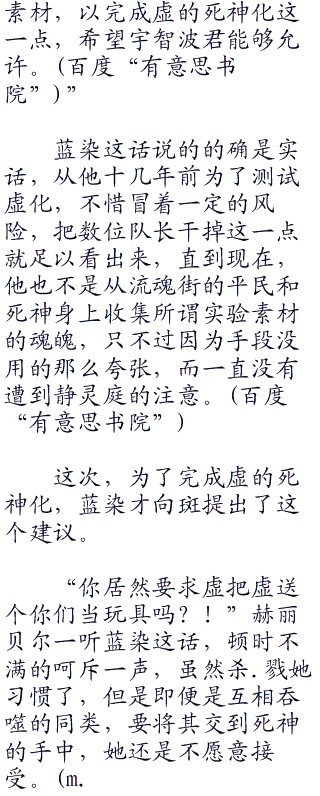 素材，以完成虚的死神化这
一点，希望宇智波君能够允
许。(百度“有意思书
院”)”
蓝染这话说的的确是实
话，从他十几年前为了测试
虚化，不惜冒着一定的风
险，把数位队长干掉这一点
就足以看出来，直到现在，
他也不是从流魂街的平民和
死神身上收集所谓实验素材
的魂魄，只不过因为手段没
用的那么夸张，而一直没有
遭到静灵庭的注意。(百度
“有意思书院”)
这次，为了完成虚的死
神化，蓝染才向斑提出了这
个建议。
“你居然要求虚把虚送
个你们当玩具吗？！”赫丽
贝尔一听蓝染这话，顿时不
满的呵斥一声，虽然杀.戮她
习惯了，但是即便是互相吞
噬的同类，要将其交到死神
的手中，她还是不愿意接
受。(m.